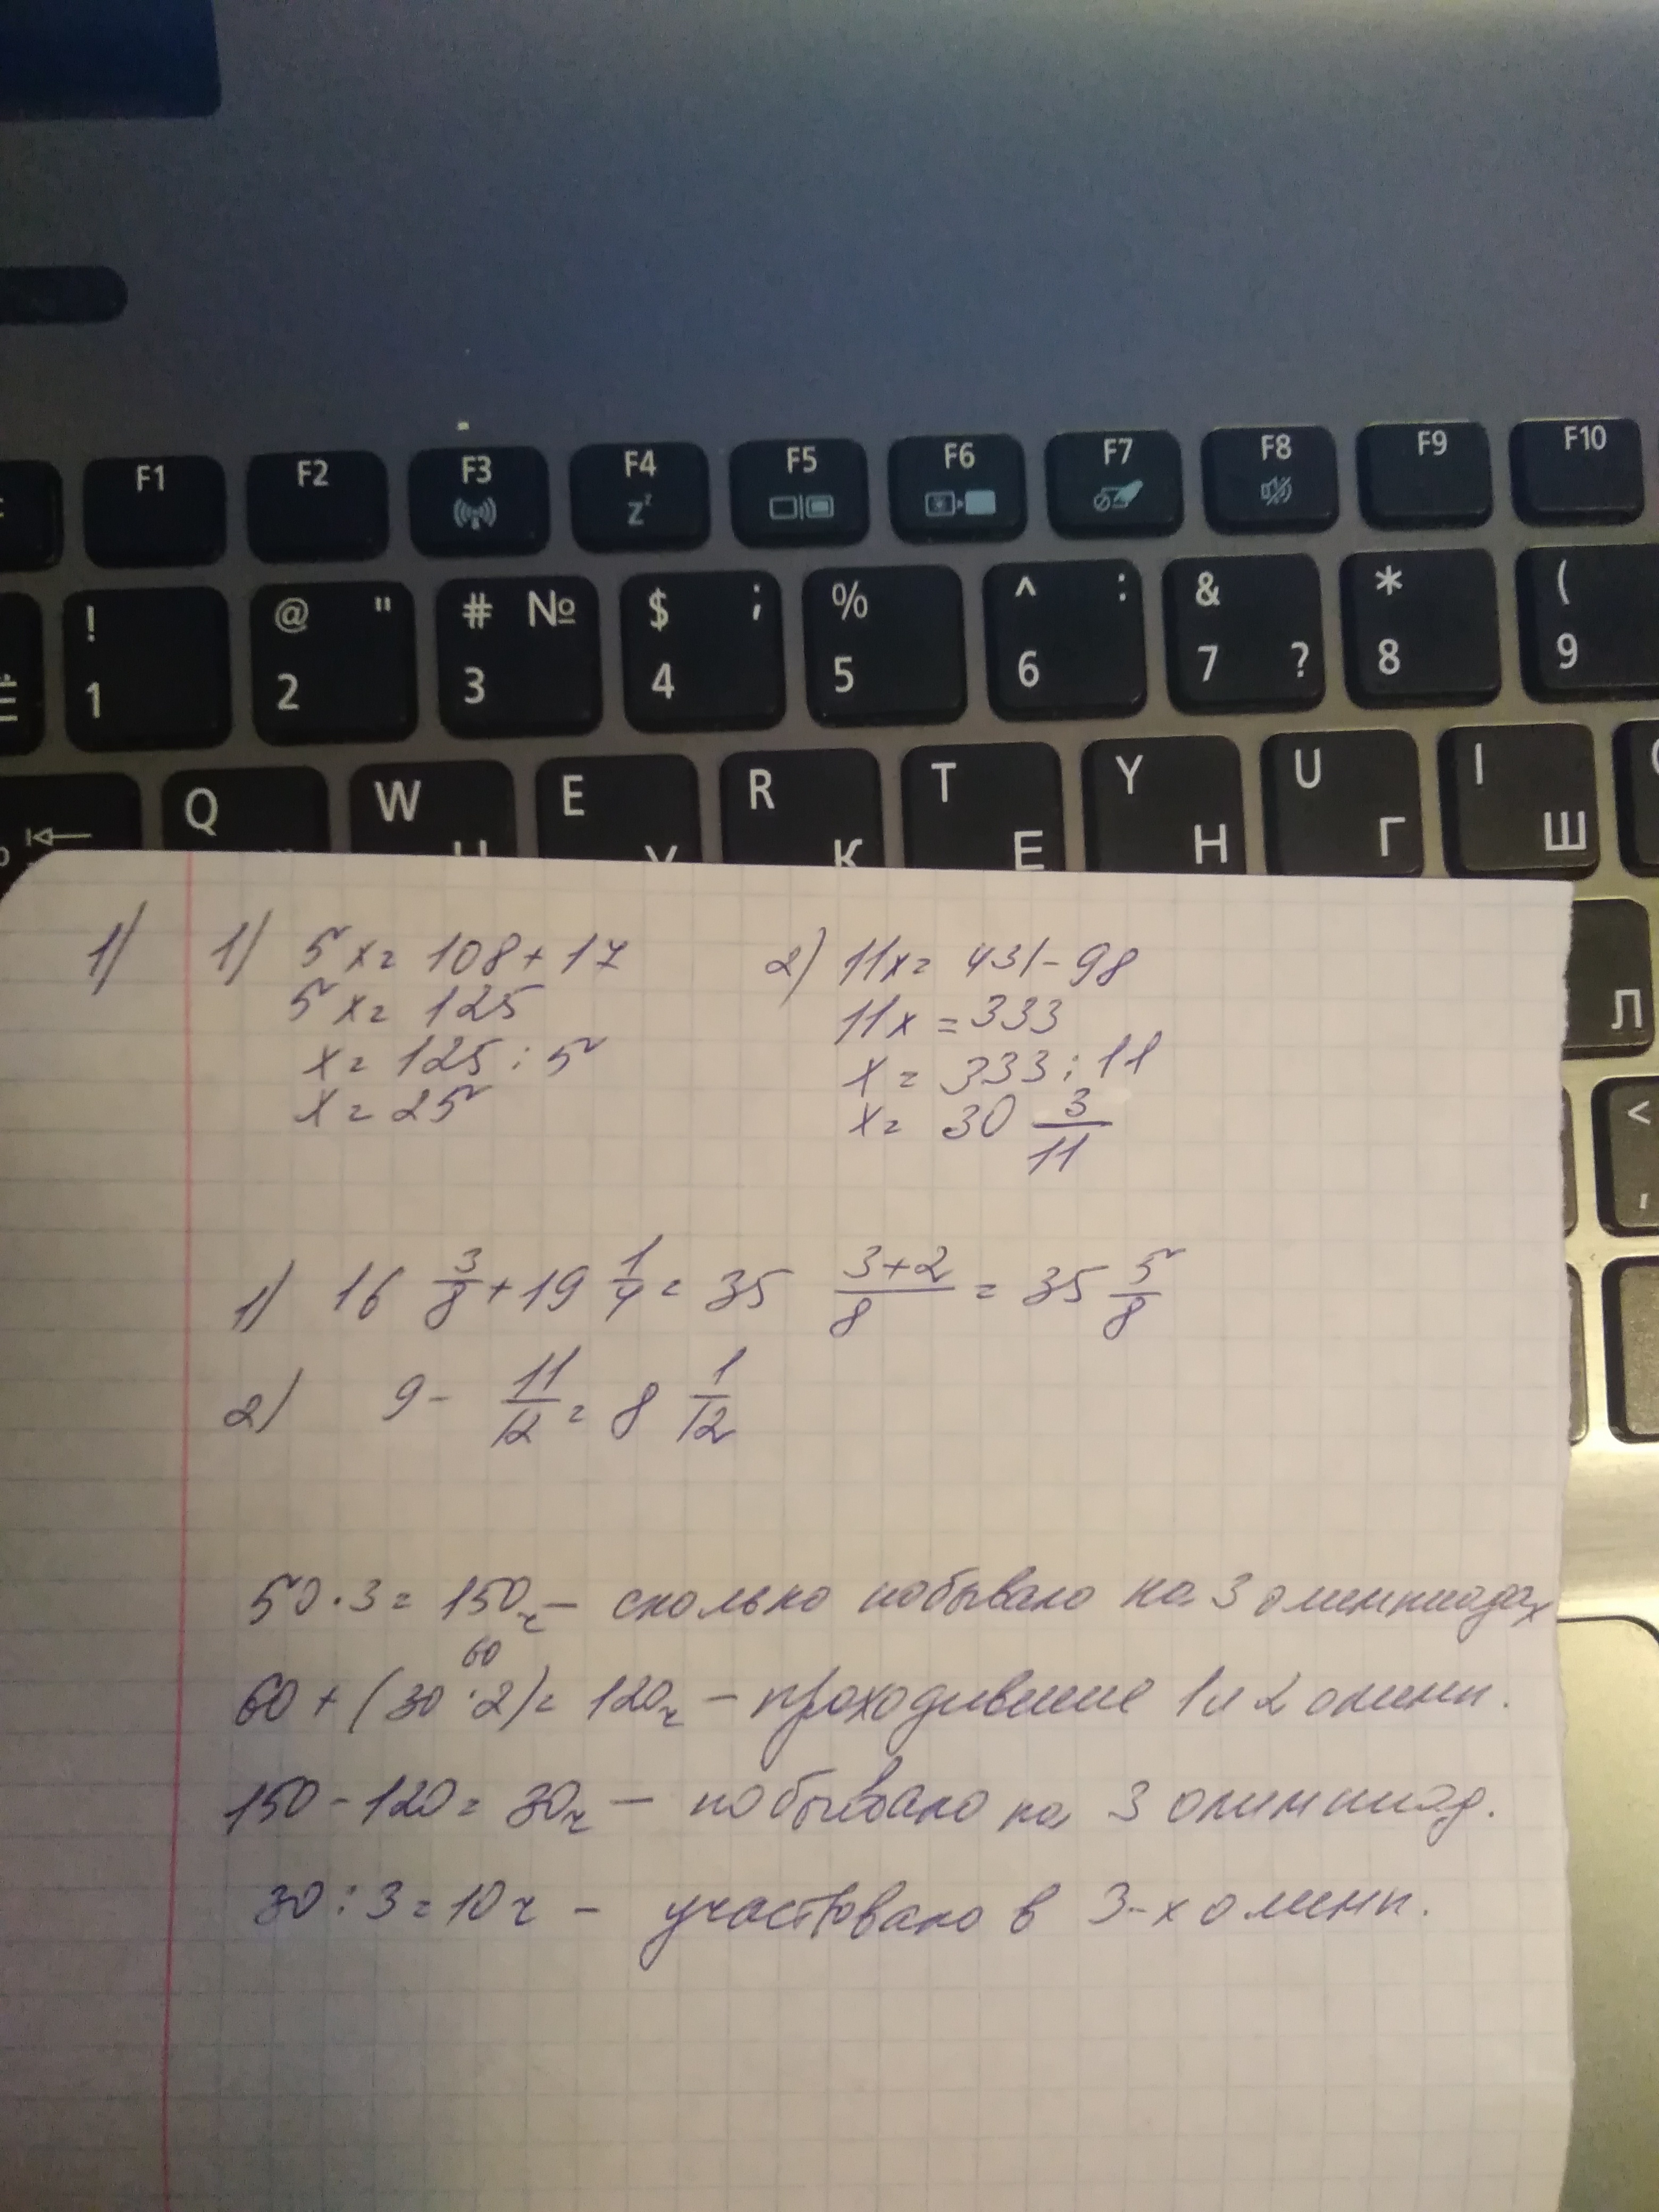 F1 F2 F3 F4 F5 F6 F7 F8 F9 F10
! 1 @ " 2 # № 3 $ ; 4 % 5 ^ : 6 & 7 ? * 8 ( 9
Q W E R T Y U I
К Е Н Г Ш
Л
<
1) 1) 5x = 108 + 17
5x = 125
x = 125 : 5
x = 25
2) 11x = 431 - 98
11x = 333
x = 333 : 11
x = 30 3/11
1) 16 3/8 + 19 1/4 = 35 (3+2)/8 = 35 5/8
2) 9 - 11/12 = 8 1/12
50 · 3 = 150ч – сколько побывало на 3 олимпиадах
60
60 + (30 · 2) = 120ч – проходившие 1 и 2 олимп.
150 - 120 = 30ч – побывало на 3 олимпиад.
30 : 3 = 10ч – участвовало в 3-х олимп.